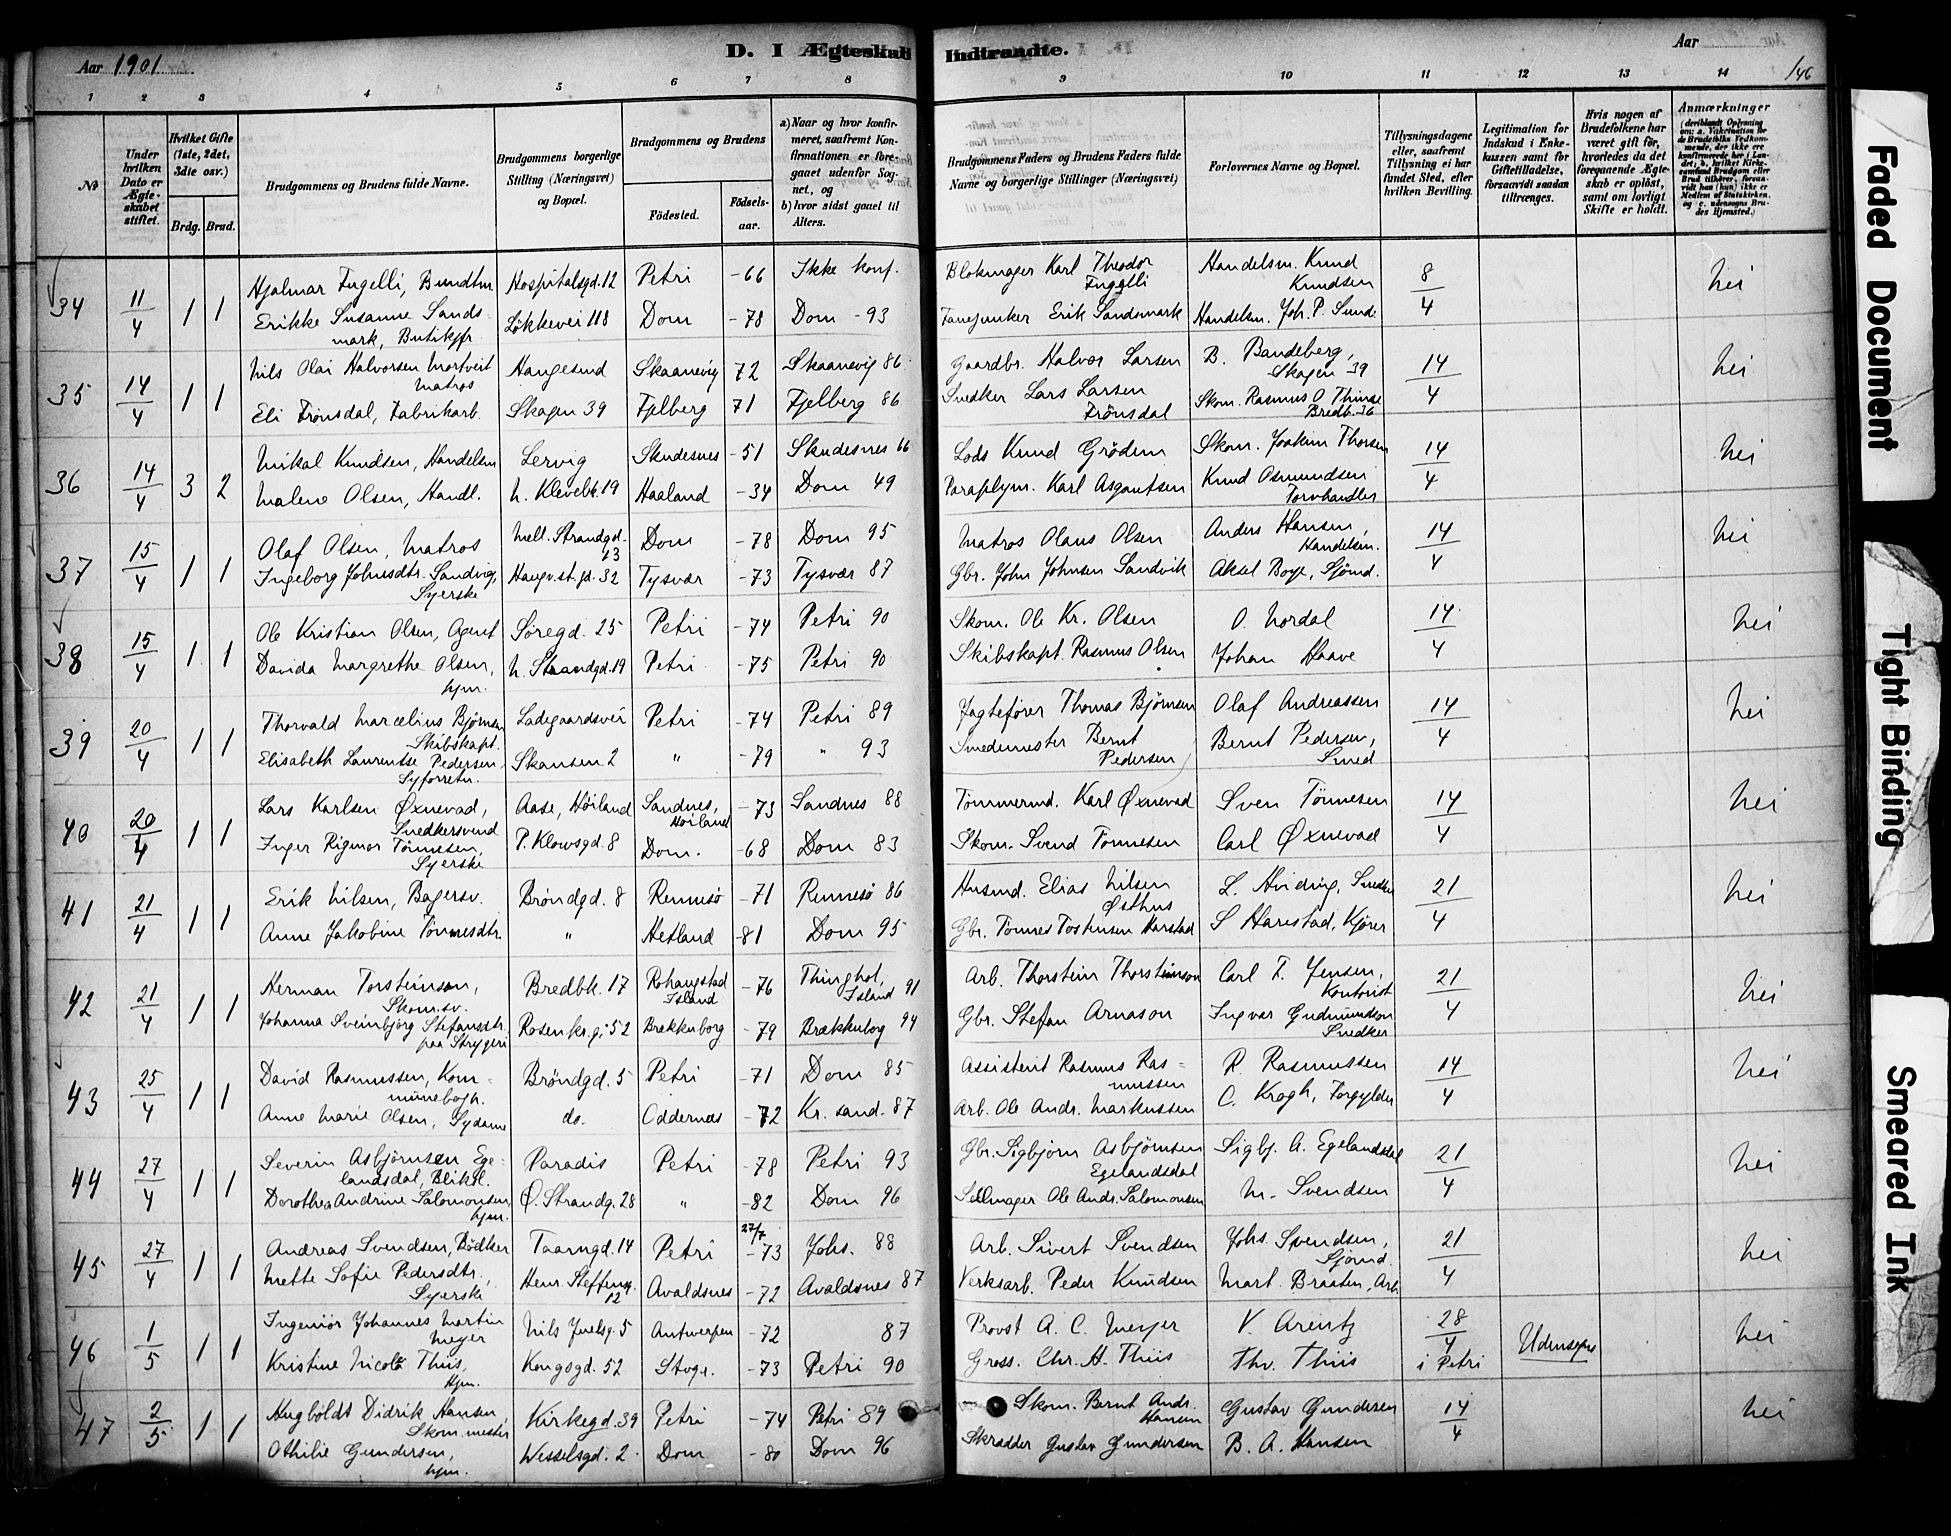 Aar 1901
D. I Ægteskab Indtraadte.
Aar
146
1 2 3 4 5 6 7 8 9 10 11 12 13 14
No
Under hvilken Dato er Ægteskabet stiftet.
Hvilket Gifte (1ste, 2det, 3die osv.)
Brdg. Brud.
Brudgommens og Brudens fulde Navne.
Brudgommens borgerlige Stilling (Næringsvei) og Bopæl.
Brudgommens og Brudens
Födested.
Födselsaar.
a) Naar og hvor konfirmeret, saafremt Konfirmationen er foregaaet udenfor Sognet, og
b) hvor sidst gaaet til Alters.
Brudgommens Faders og Brudens Faders fulde Navne og borgerlige Stillinger (Næringsvei)
Forlovernes Navne og Bopæl.
Tillysningsdagene eller, saafremt Tillysning ei har fundet Sted, efter hvilken Bevilling.
Legitimation for Indskud i Enkekassen samt for Giftetilladelse, forsaavidt saadan tiltrænges.
Hvis nogen af Brudefolkene har været gift för, hvorledes da det foregaaende Ægteskab er oplöst, samt om lovligt Skifte er holdt.
Anmærkninger
34 11/4 1 1 Hjalmar Fugelli, Bundtm Hospitalsgd. 12 Petri -66 Ikke konf. Blokmager Karl Theodor Fugelli Handelsm. Knud Knudsen 8/4 Nei
Erikke Susanne Sandsmark, Butikjfr. Løkkevei 118 Dom -78 Dom -93 Fanejunker Erik Sandsmark Handelsm. Joh. P. Sunde
35 14/4 1 1 Nils Olai Halvorsen Mortveit Matros Haugesund Skaanevig 72 Skaanevig 86 Gaardbr. Halvor Larsen B. Bandeberg, Skagen 39 14/4 Nei
Eli Frönsdal, Fabrikarb. Skagen 39 Fjelberg 71 Fjelberg 86 Snedker Lars Larsen Frönsdal Skom. Rasmus O Bredb. 36
36 14/4 3 2 Mikal Knudsen, Handelsm Lervig Skudesnes -51 Skudesnes 66 Lods Knud Grödem Skom. Joakim Thorsen 14/4 Nei
Malene Olsen, Handl. N. Klevebk. 19 Haaland -34 Dom 49 Paraplym. Karl Asgautsen Knud Osmundsen Torvhandler
37 15/4 1 1 Olaf Olsen, Matros Mell. Strandgd. 13 Dom -78 Dom 95 Matros Olaus Olsen Anders Hansen, Handelsm. 14/4 Nei
Ingeborg Johnsdtr. Sandvig, Syerske Haugv.st.gd. 32 Tysvær -73 Tysvær 87 Gbr. John Johnsen Sandvik Aksel Boye, Sjömd.
38 15/4 1 1 Ole Kristian Olsen, Agent Söregd. 25 Petri -74 Petri 90 Skom. Ole Kr. Olsen O. Nordal 14/4 Nei
Davida Margrethe Olsen, hjm. N. Strandgd. 19 Petri -75 Petri 90 Skibskapt. Rasmus Olsen Johan Haave
39 20/4 1 1 Thorvald Marcelius Björnsen Skibskapt. Ladegaardsvei Petri -74 Petri 89 Jagtefører Thomas Bjørnsen Olaf Andreassen 14/4 Nei
Elisabeth Laurentse Pedersen, Syforretn. Skansen 2 " -79 " 93 Smedemester Bernt Pedersen Bernt Pedersen, Smed
40 20/4 1 1 Lars Karlsen Øxnevad, Snedkersvend Aase, Høiland Sandnes, Høiland -73 Sandnes 88 Tömmermd. Karl Øxnevad Sven Tönnesen 14/4 Nei
Inger Rigmor Tönnesen, Syerske P. Klowsgd. 8 Dom. -68 Dom 83 Skom. Svend Tönnesen Carl Øxnevad
41 21/4 1 1 Erik Nilsen, Bagersv. Bröndgd. 8 Rennesö -71 Rennesö 86 Husmd. Elias Nilsen Østhus L. Hviding, Snedker 21/4 Nei
Anne Jakobine Tönnesdtr. " Hetland -81 Dom 95 Gbr. Tönnes Tostensen Harstad S Harestad, Kjörer
42 21/4 1 1 Herman Torsteinson, Skom.sv. Bredbk. 17 Island -76 Island 91 Arb. Thorstein Thorsteinson Carl F. Jensen, Kontorist 21/4 Nei
Johanna Sveinbjörg Stefansdtr. paa Strygeri Rosenkr.g. 52 Brekkuborg -79 Brækkubog 94 Gbr. Stefan Arnason Ingvar Gudmundson Snedker
43 25/4 1 1 David Rasmussen, Kommunebogh. Bröndgd. 5 Petri -71 Dom 85 Assistent Rasmus Rasmussen R. Rasmussen 14/4 Nei
Anne Marie Olsen, Sydame do. Oddernes -72 Kr.sand. 87 Arb. Ole Andr. Markussen C. Krogh, Forgylder
44 27/4 1 1 Severin Asbjörnsen Egelandsdal, Bliksl. Paradis Petri -78 Petri 93 Gbr. Sigbjörn Asbjörnsen Egelandsdal Sigbj. A. Egelandsdal 21/4 Nei
Dorothea Andrine Salomonsen, hjm. Ø. Strandg. 28 " -82 Dom 96 Seilmager Ole Andr. Salomonsen M. Svendsen
45 27/4 1 1 Andreas Svendsen, Bödker Taarngd. 14 Petri 27/7 -73 Johs. 88 Arb. Sivert Svendsen Johs. Svendsen, Sjömd. 21/4 Nei
Mette Sofie Pedersdtr., Syerske Henr. Steffensg. 12 Avaldsnes -72 Avaldsnes 87 Verksarb. Peder Knudsen Mart. Braaten, Arb.
46 1/5 1 1 Ingeniör Johannes Martin Meyer Nils Juelsg. 5 Antwerpen -72 87 Provst A. C. Meyer V. Arentz 28/4 i Petri Udensogns Nei
Kristine Nicol. Thiis, Hjm. Kongsgd. 52 Stvgr. -73 Petri 90 Gross. Chr. H. Thiis Thv. Thiis
47 2/5 1 1 Hugboldt Didrik Hansen, Skom.mester Kirkegd. 39 Petri -74 Petri 89 Skom. Bernt Andr. Hansen Gustav Gundersen 14/4 Nei
Othilie Gundersen, hjm. Wesselsgd. 2 Dom -80 Dom 96 Skrædder Gustav Gundersen B. A. Hansen
Faded Document
Tight Binding
Smeared Ink